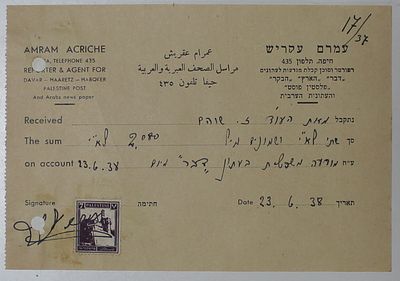 17/37
AMRAM ACRICHE
TELEPHONE 435
REPORTER & AGENT FOR
DAVAR - HAARETZ - HABOKER
PALESTINE POST
And Arabs news paper
عمرام عقريش
مراسل الصحف العبرية والعربية
حيفا تلفون ٤٣٥
עמרם עקריש
חיפה. טלפון 435
רפורטר וסוכן קבלת מודעות לעתונים
"דבר" "הארץ" "הבקר"
"פלסטין פוסט"
והעתונות הערבית
Received מאת העו"ד ז. נתקבל
The sum 2.080 לא"י שתי לא"י ושמונים מיל סך
on account 23.6.38 מודעה משפטית בעתון "דבר" מיום ע"ח
Signature חתימה Date 23.6.38 תאריך
2 PALESTINE